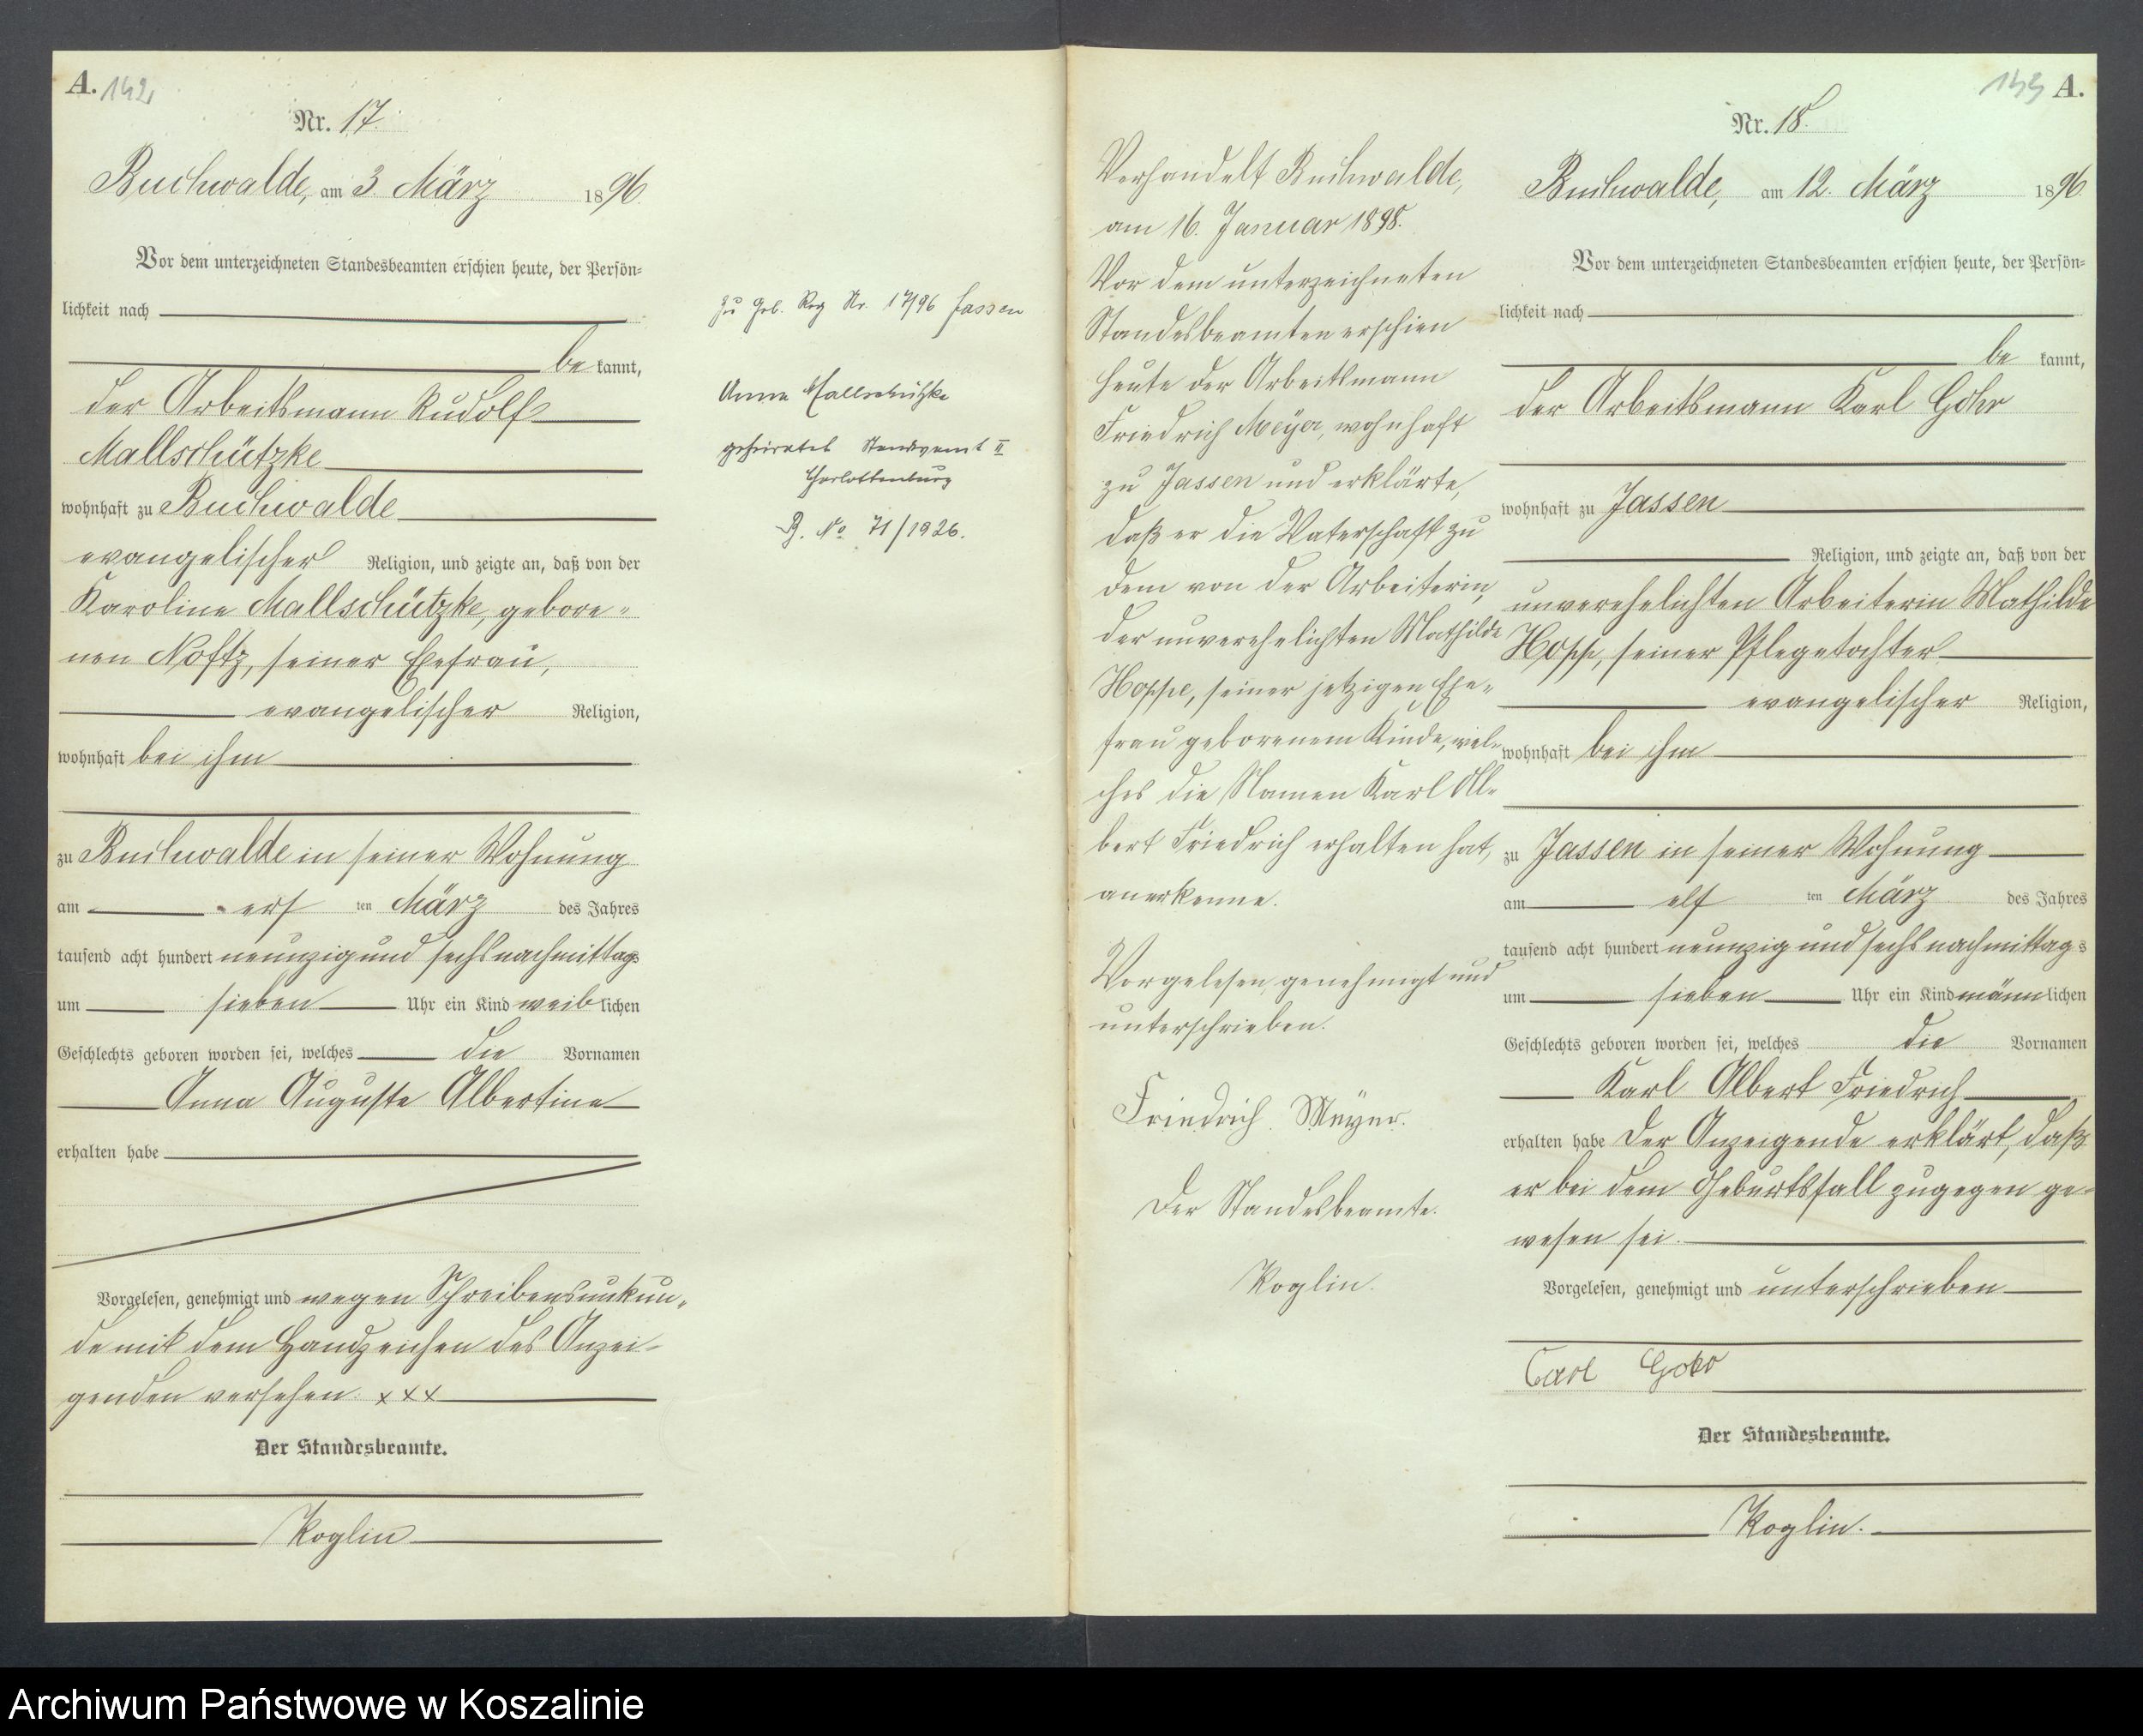 A. 142
Nr. 17.
Buchwalde, am 3. März 1896.
Vor dem unterzeichneten Standesbeamten erschien heute, der Persön=
lichkeit nach
be kannt,
der Arbeitsmann Rudolf
Mallschützke
wohnhaft zu Buchwalde
evangelischer Religion, und zeigte an, daß von der
Karoline Mallschützke, gebore=
nen Noftz, seiner Ehefrau,
evangelischer Religion,
wohnhaft bei ihm
zu Buchwalde in seiner Wohnung
am ers ten März des Jahres
tausend acht hundert neunzig und sechs nachmittags
um sieben Uhr ein Kind weiblichen
Geschlechts geboren worden sei, welches die Vornamen
Anna Auguste Albertine
erhalten habe
Vorgelesen, genehmigt und wegen Schreibensunkun=
de mit dem Handzeichen des Anzei=
genden versehen. xxx
Der Standesbeamte.
Koglin
zu Geb. Reg Nr. 17/96 Jassen
Anna Mallschützke
geheiratet Standesamt II
Charlottenburg
No 71/1926.
Verhandelt Buchwalde,
am 16. Januar 1898.
Vor dem unterzeichneten
Standesbeamten erschien
heute der Arbeitsmann
Friedrich Meyer, wohnhaft
zu Jassen und erklärte,
daß er die Vaterschaft zu
dem von der Arbeiterin,
der unverehelichten Mathilde
Hoppe, seiner jetzigen Ehe=
frau geborenem Kinde, wel=
ches die Namen Karl Al=
bert Friedrich erhalten hat,
anerkenne.
Vorgelesen, genehmigt und
unterschrieben.
Friedrich Meyer.
Der Standesbeamte.
Koglin.
143 A.
Nr. 18.
Buchwalde, am 12. März 1896.
Vor dem unterzeichneten Standesbeamten erschien heute, der Persön=
lichkeit nach
be kannt,
der Arbeitsmann Karl Gohr
wohnhaft zu Jassen
Religion, und zeigte an, daß von der
unverehelichten Arbeiterin Mathilde
Hopp, seiner Pflegetochter
evangelischer Religion,
wohnhaft bei ihm
zu Jassen in seiner Wohnung
am elf ten März des Jahres
tausend acht hundert neunzig und sechs nachmittags
um sieben Uhr ein Kind männlichen
Geschlechts geboren worden sei, welches die Vornamen
Karl Albert Friedrich
erhalten habe Der Anzeigende erklärt, daß
er bei dem Geburtsfall zugegen ge=
wesen sei.
Vorgelesen, genehmigt und unterschrieben
Carl Gohr
Der Standesbeamte.
Koglin.
Archiwum Państwowe w Koszalinie